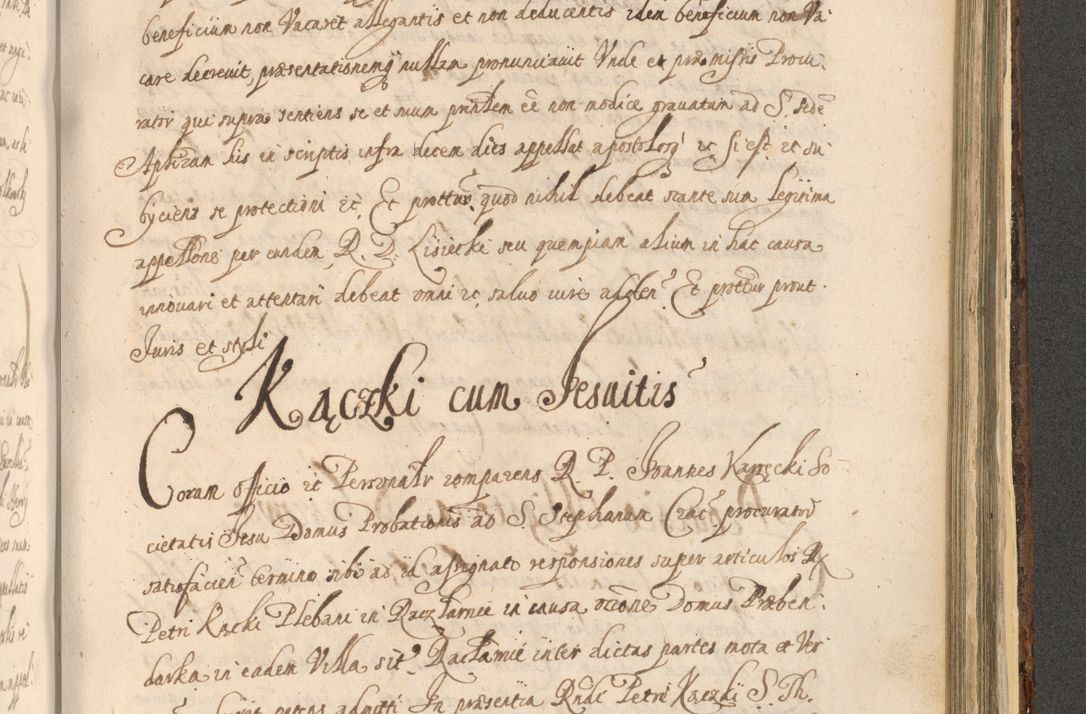 beneficium non Vacaret allegantis et non deducentis idem beneficium non Va
care decrevit, præsentationemq nullam pronunciavit Unde et præmissis Procu
rator qui supra sentiens se et suum prñlem eẽ non modice gravatum ad S. Sede
Aplicam his in scriptis infra decem dies appellat apostolosq̷ ꝛc si est ꝛc su
byciens se protectioni ꝛc, Et prottur quod nihil debeat stante sua legitima
appellõne per eundem R. D. Lisiecki seu quempiam alium in hac causa
innovari et attentari debeat omni ꝛc salvo iure addeñ Et prottur prout
Juris et styli
Kączki cum Jesuitis
Coram officio ꝛc Personalr comparens R. P. Joannes Karęcki So
cietatis Jesu Domus Probationis ad S. Stephanum Crac procurator
satisfacien termino sibi ad id assignato responsiones super articulos R
Petri Kącki Plebani in Raczławice in causa rõne Domus Præben
darka in eadem Villa sit Racławice inter dictas partes mota et Ver
petens admitti In præsentia Rndi Petri Kączki S. Th.